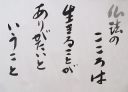 仏法の
こころは
生きることが
ありがたいと
いうこと